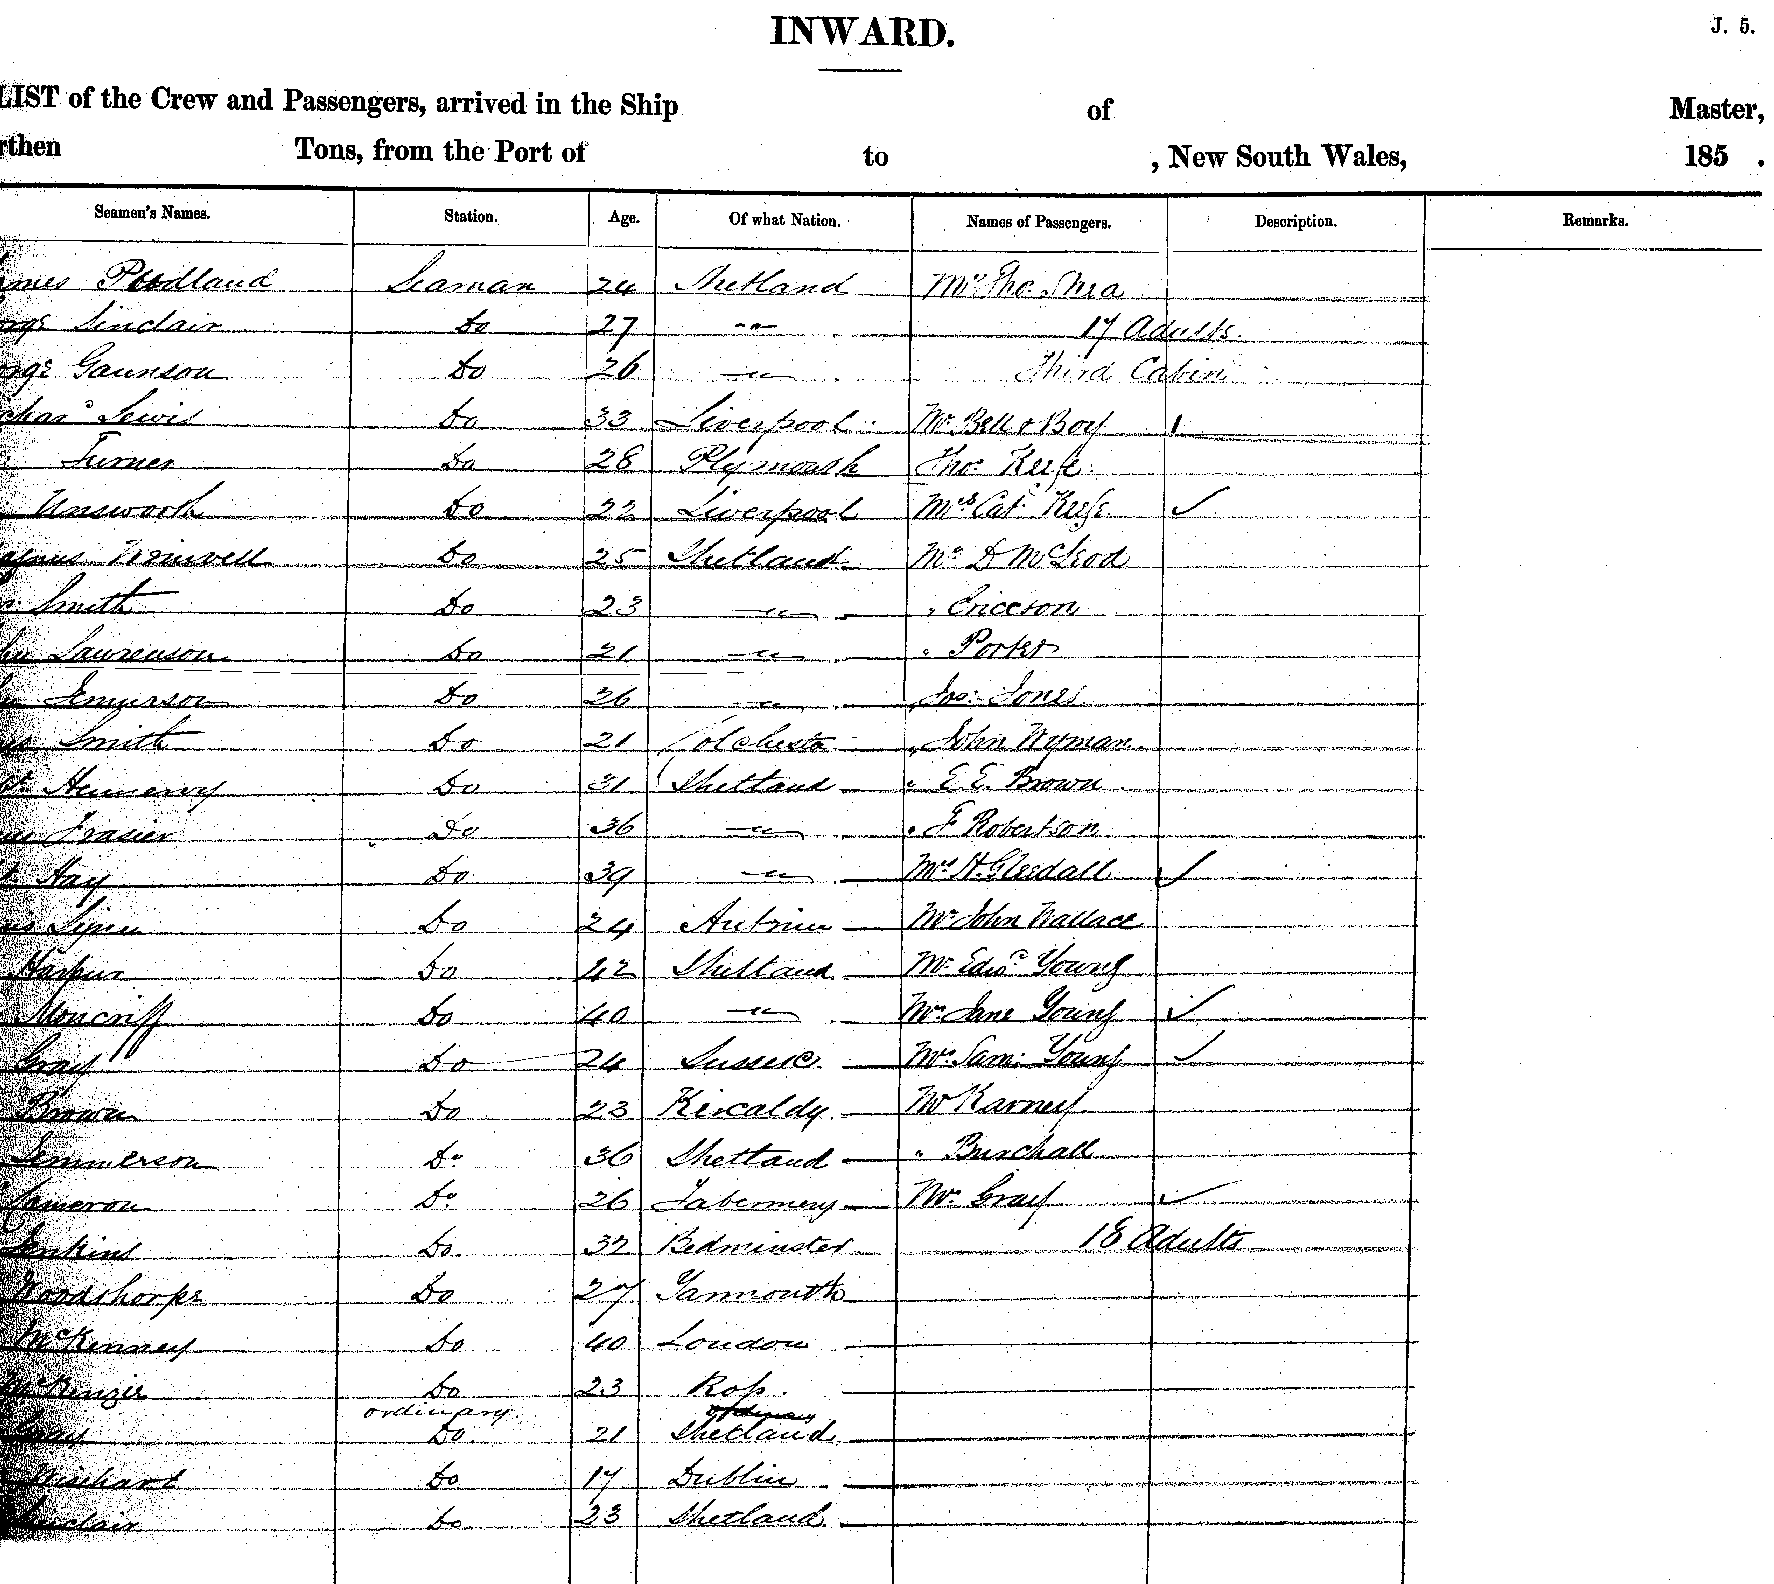 INWARD.
J. 5.
LIST of the Crew and Passengers, arrived in the Ship of Master,
rthen Tons, from the Port of to , New South Wales, 185 .
Seamen's Names. Station. Age. Of what Nation. Names of Passengers. Description. Remarks.
Seaman 24 Shetland Mr Tho. Shea
Sinclair Do 27 -"- 17 Adults.
Gaunson Do 26 -"- Third Cabin
Lewis Do 33 Liverpool Mr Bell & Boy
Turner Do 28 Plymouth Tho. Keefe
Unsworth Do 22 Liverpool Mrs Cat. Keefe ✓
Do 25 Shetland Mr D McLeod
Smith Do 23 -"- " Ericcson
Lawrenson Do 21 -"- " Porter
Jemerson Do 26 -"- Jos. Jones
Smith Do 21 Colchester " John Wyman
Do 31 Shetland " E E. Brown
Frasier Do 36 -"- " F Robertson
Hay Do 39 -"- Mrs H. Gledall ✓
Do 24 Antrim Mr John Wallace
Harper Do 42 Shetland Mr Edwd Young
Moncriff Do 40 -"- Mrs Jane Young ✓
Gray Do 24 Sussex Mr Sam. Young ✓
Brown Do 23 Kircaldy Mr Karney
Jemmerson Do 36 Shetland " Burchall
Cameron Do 26 Mr. Gray ✓
Jenkins Do 32 Bedminster 18 Adults
Woodthorpe Do 27 Yarmouth
McKenney Do 40 London
McKenzie Do 23 Ross
ordinary
Do 21 Shetland
Do 17 Dublin
Sinclair Do 23 Shetland